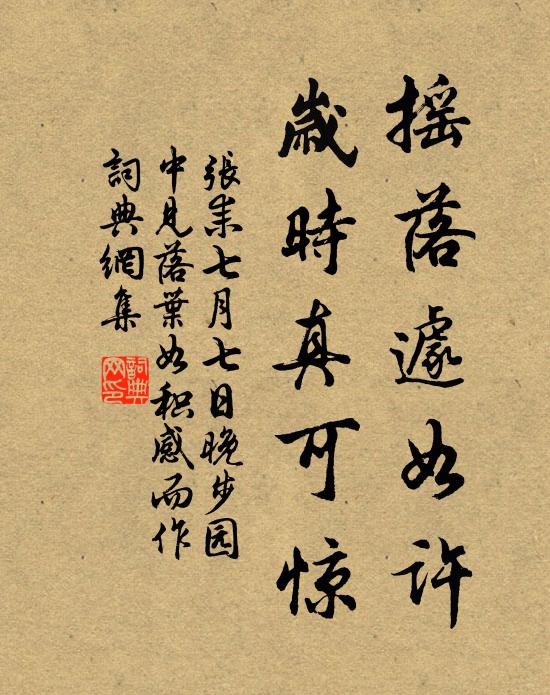 摇落遽如许
歲時真可惊
張耒七月七日晚步园
中見落葉如积感而作
詞典網集
詞典网印